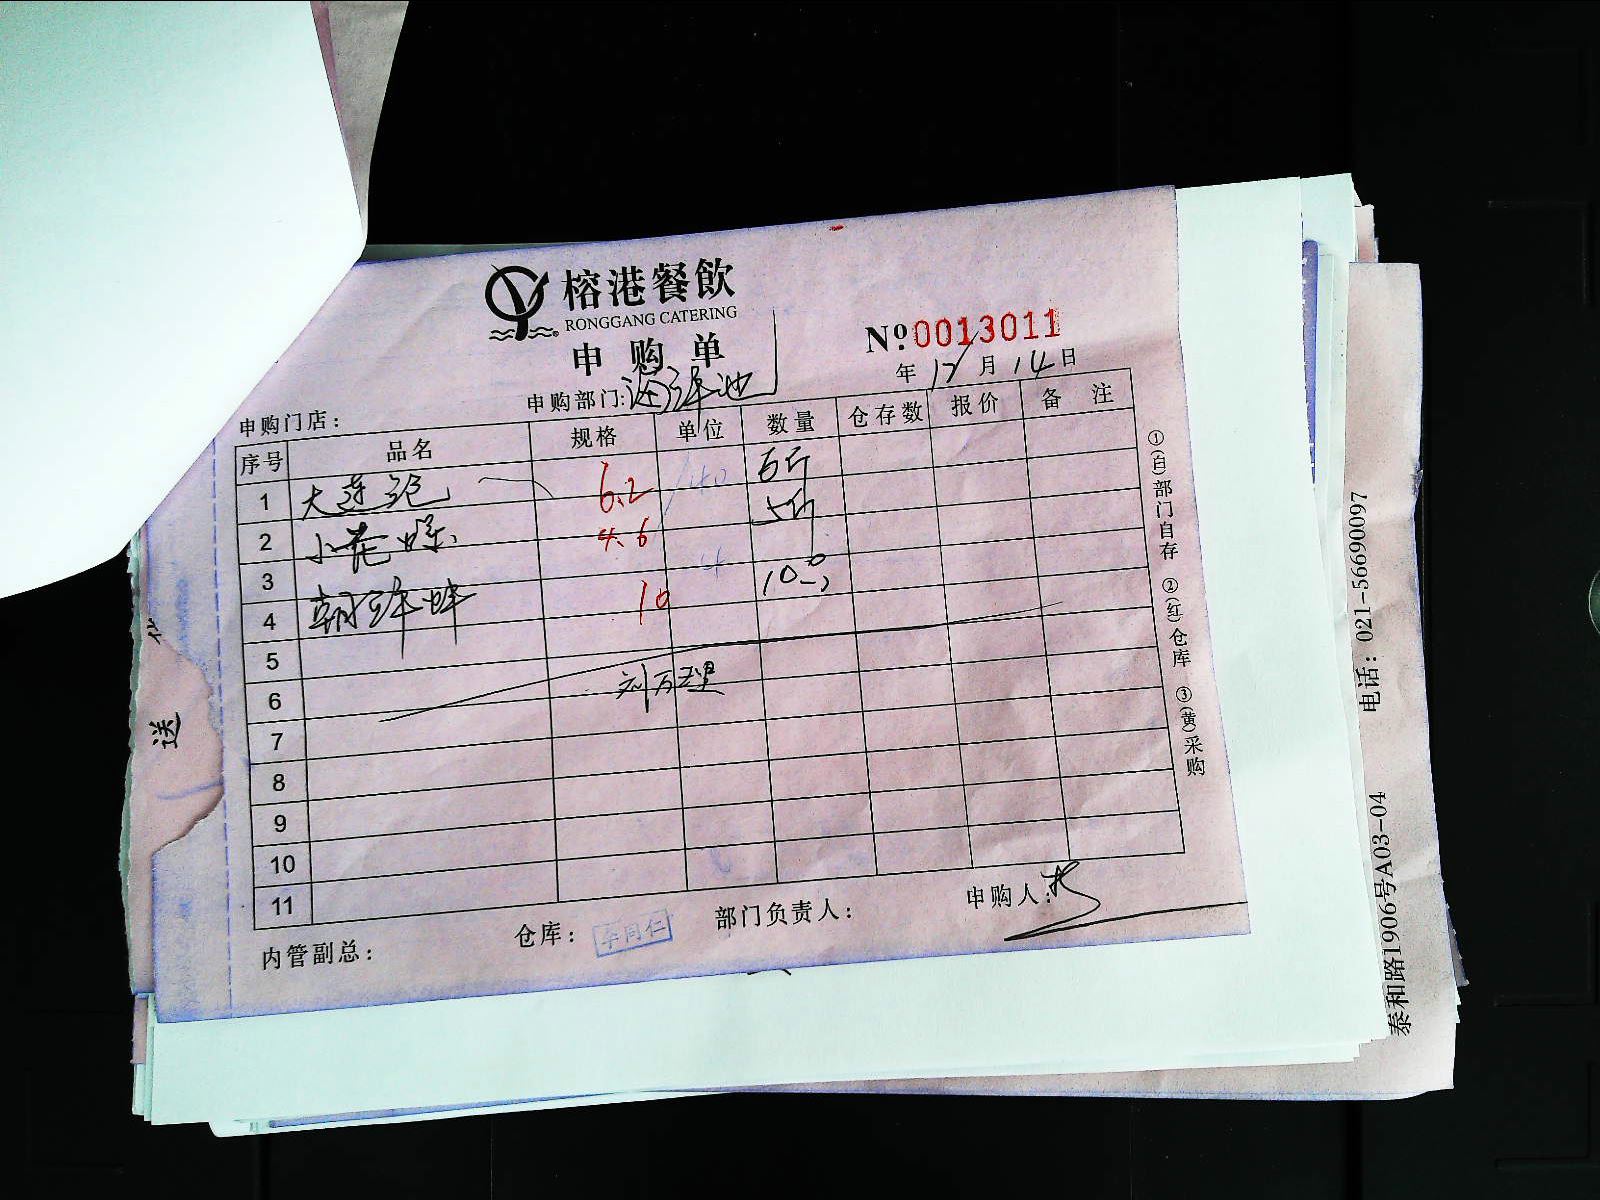 榕港餐飲
RONGGANG CATERING
申购单
№ 0013011
年 12 月 14 日
申购门店：
申购部门: 海鲜池
序号 品名 规格 单位 数量 仓存数 报价 备注
1 大连鲍 6.2 140 5斤
2 小花螺 4.6 5斤
3
4 朝鲜蚌 10
5
6
7
8
9
10
11
内管副总：
仓库： 李同仁
部门负责人：
申购人:
①(白)部门自存 ②(红)仓库 ③(黄)采购
送
泰和路1906号A03-04 电话：021-56690097